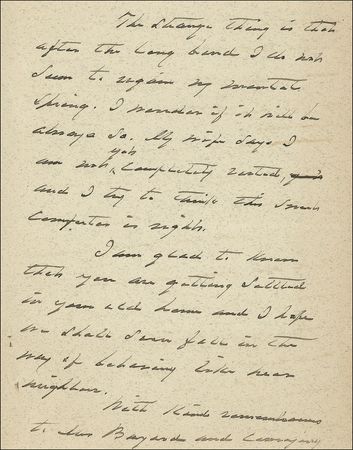 The strange thing is that
after the long bend I do not
seem to regain my mental
spring. I wonder if it will be
always so. My wife says I
am not yet, completely rested,
and I try to think this
is right.
I am glad to know
that you are getting settled
in your old home and I hope
we shall soon fall in the
way of behaving like near
neighbors.
With kind remembrances
to Mrs Bayard and